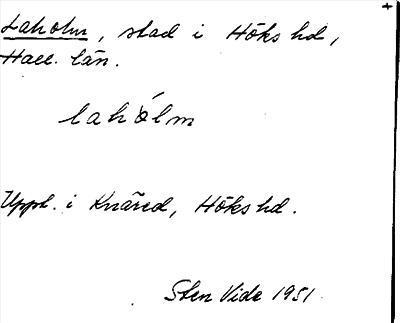 Laholm, stad i Höks hd,
Hall. län.
lahòlm
Uppl. i Knäred, Höks hd.
Sten Vide 1951